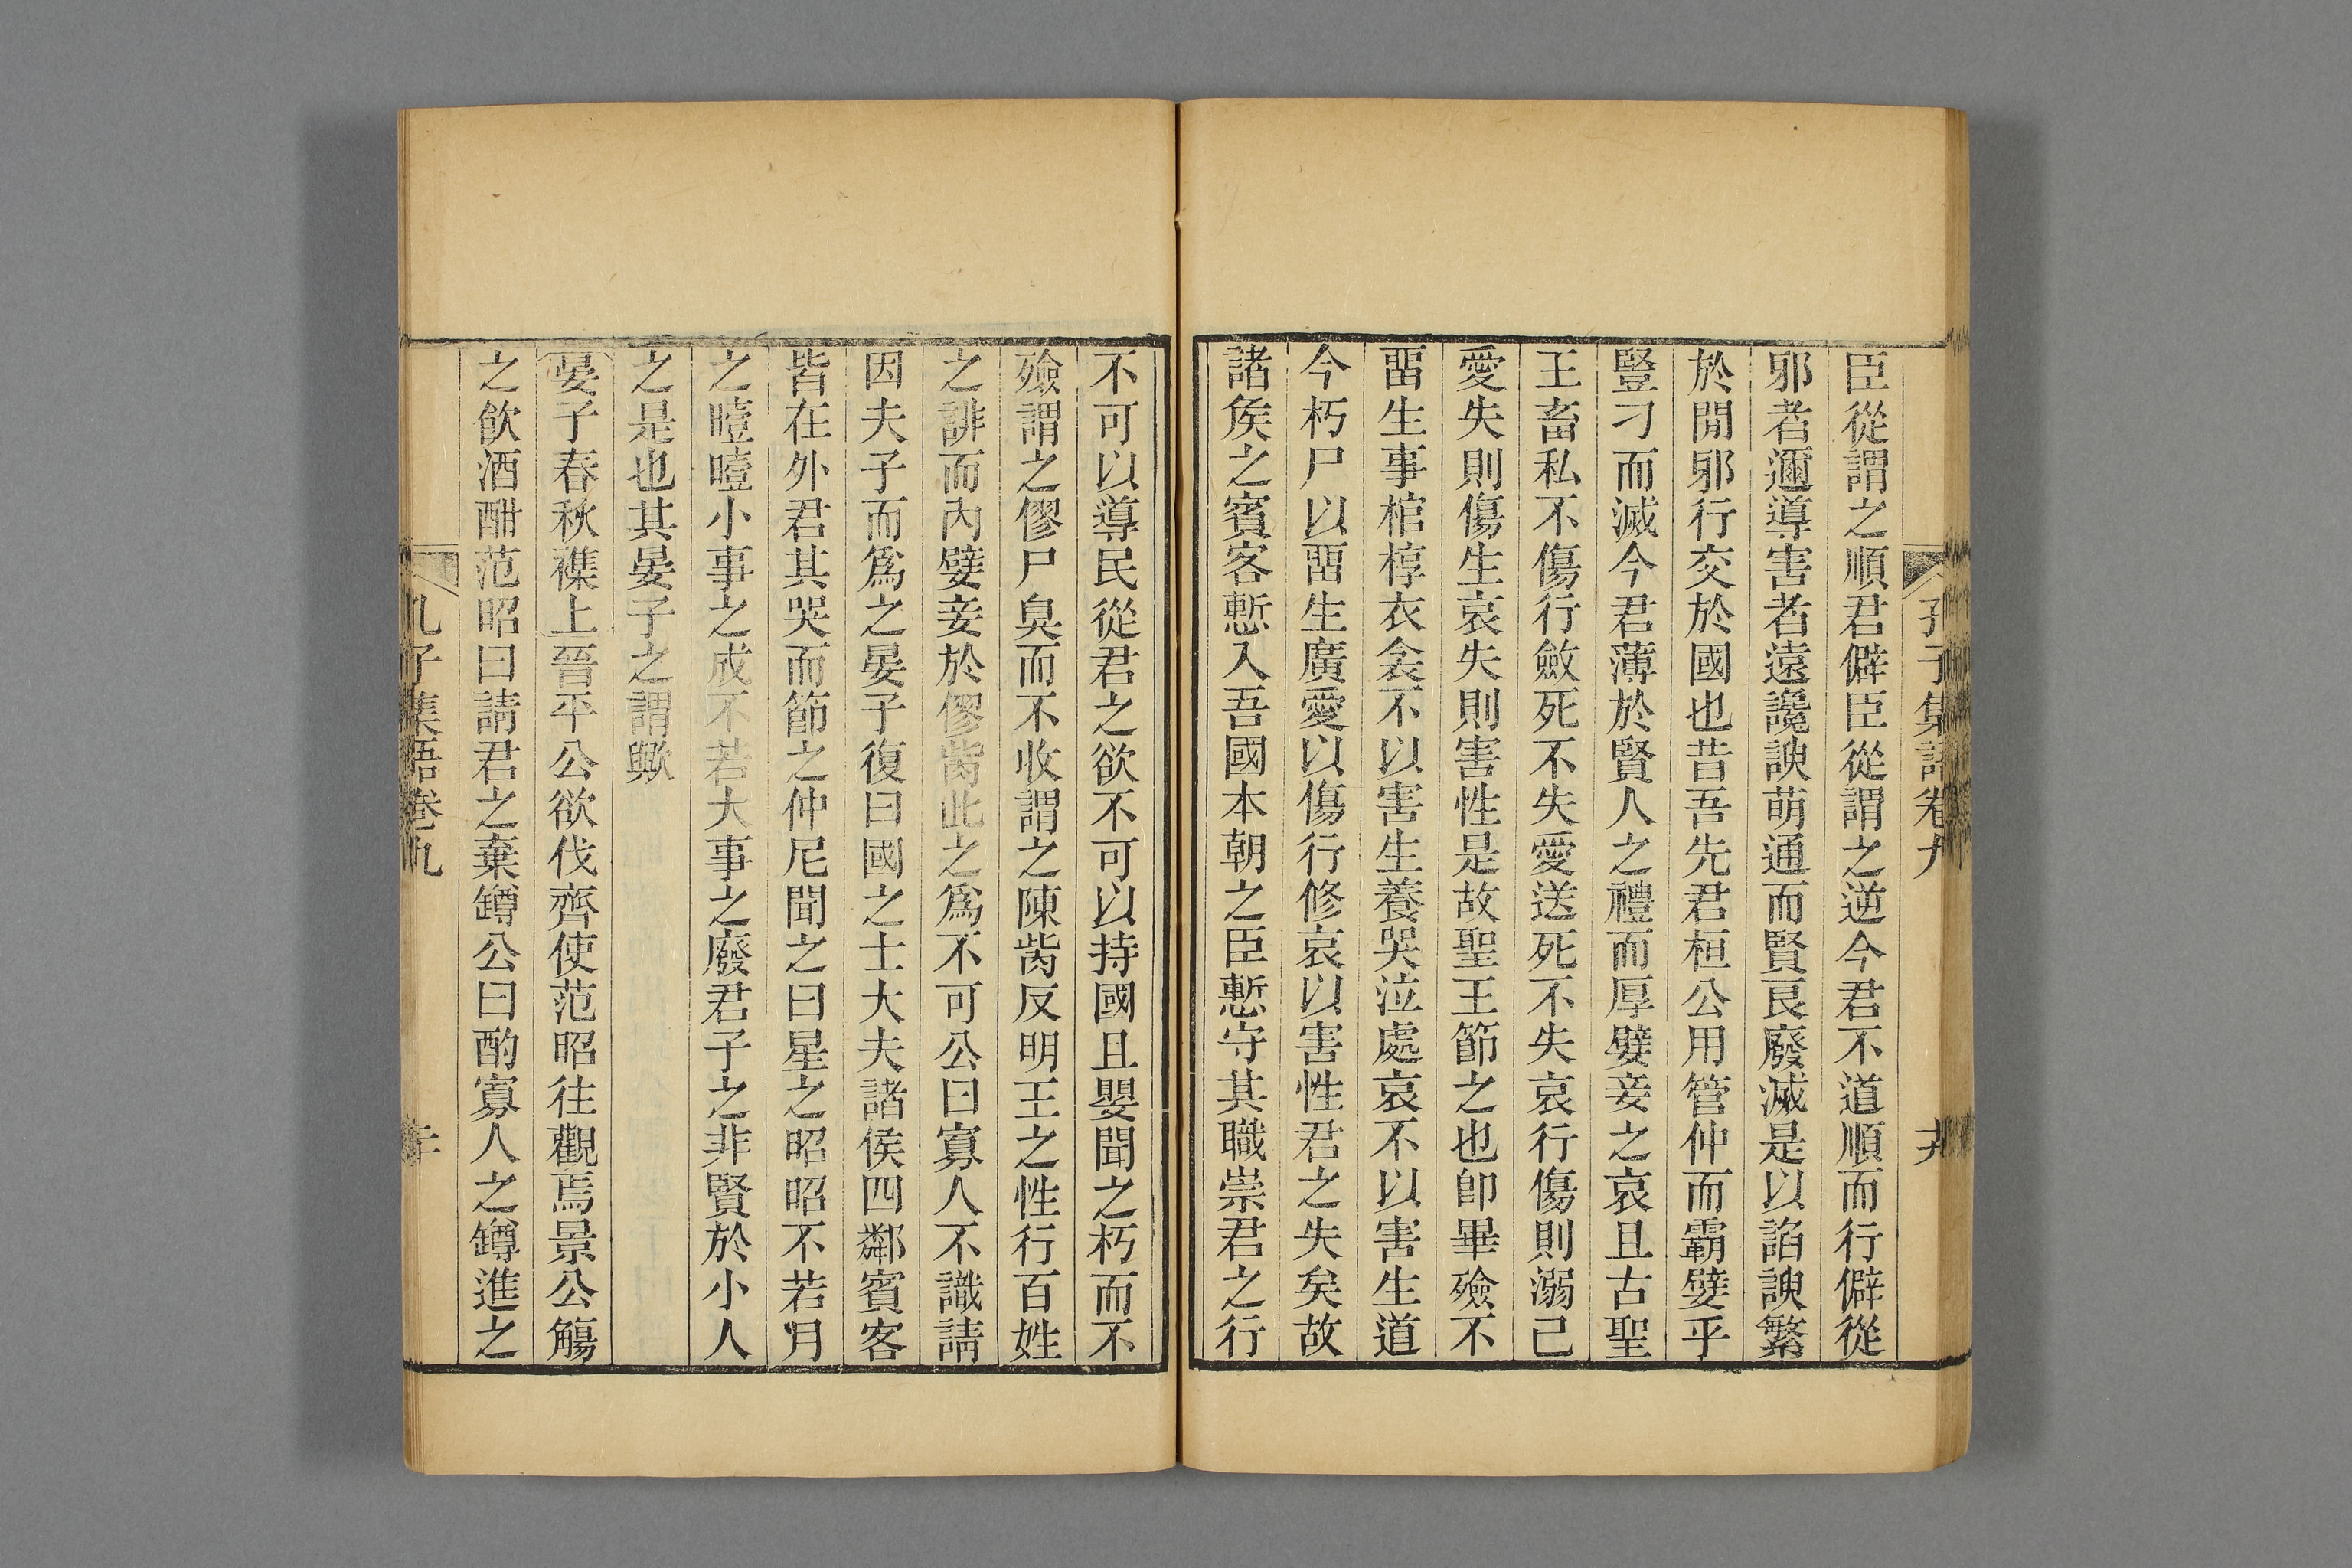 孔子集語卷九 十九
臣從謂之順君僻臣從謂之逆今君不道順而行僻從
邪者邇導害者遠讒諛萌通而賢良廢滅是以諂諛繁
於閒邪行交於國也昔吾先君桓公用管仲而霸嬖乎
豎刁而滅今君薄於賢人之禮而厚嬖妾之哀且古聖
王畜私不傷行斂死不失愛送死不失哀行傷則溺己
愛失則傷生哀失則害性是故聖王節之也卽畢殮不
畱生事棺椁衣衾不以害生養哭泣處哀不以害生道
今朽尸以畱生廣愛以傷行修哀以害性君之失矣故
諸矦之賓客慙入吾國本朝之臣慙守其職崇君之行
不可以導民從君之欲不可以持國且嬰聞之朽而不
殮謂之僇尸臭而不收謂之陳胔反明王之性行百姓
之誹而內嬖妾於僇胔此之爲不可公曰寡人不識請
因夫子而爲之晏子復曰國之士大夫諸侯四鄰賓客
皆在外君其哭而節之仲尼聞之曰星之昭昭不若月
之曀曀小事之成不若大事之廢君子之非賢於小人
之是也其晏子之謂歟
晏子春秋襍上晉平公欲伐齊使范昭往觀焉景公觴
之飮酒酣范昭曰請君之棄罇公曰酌寡人之罇進之
孔子集語卷九 二十